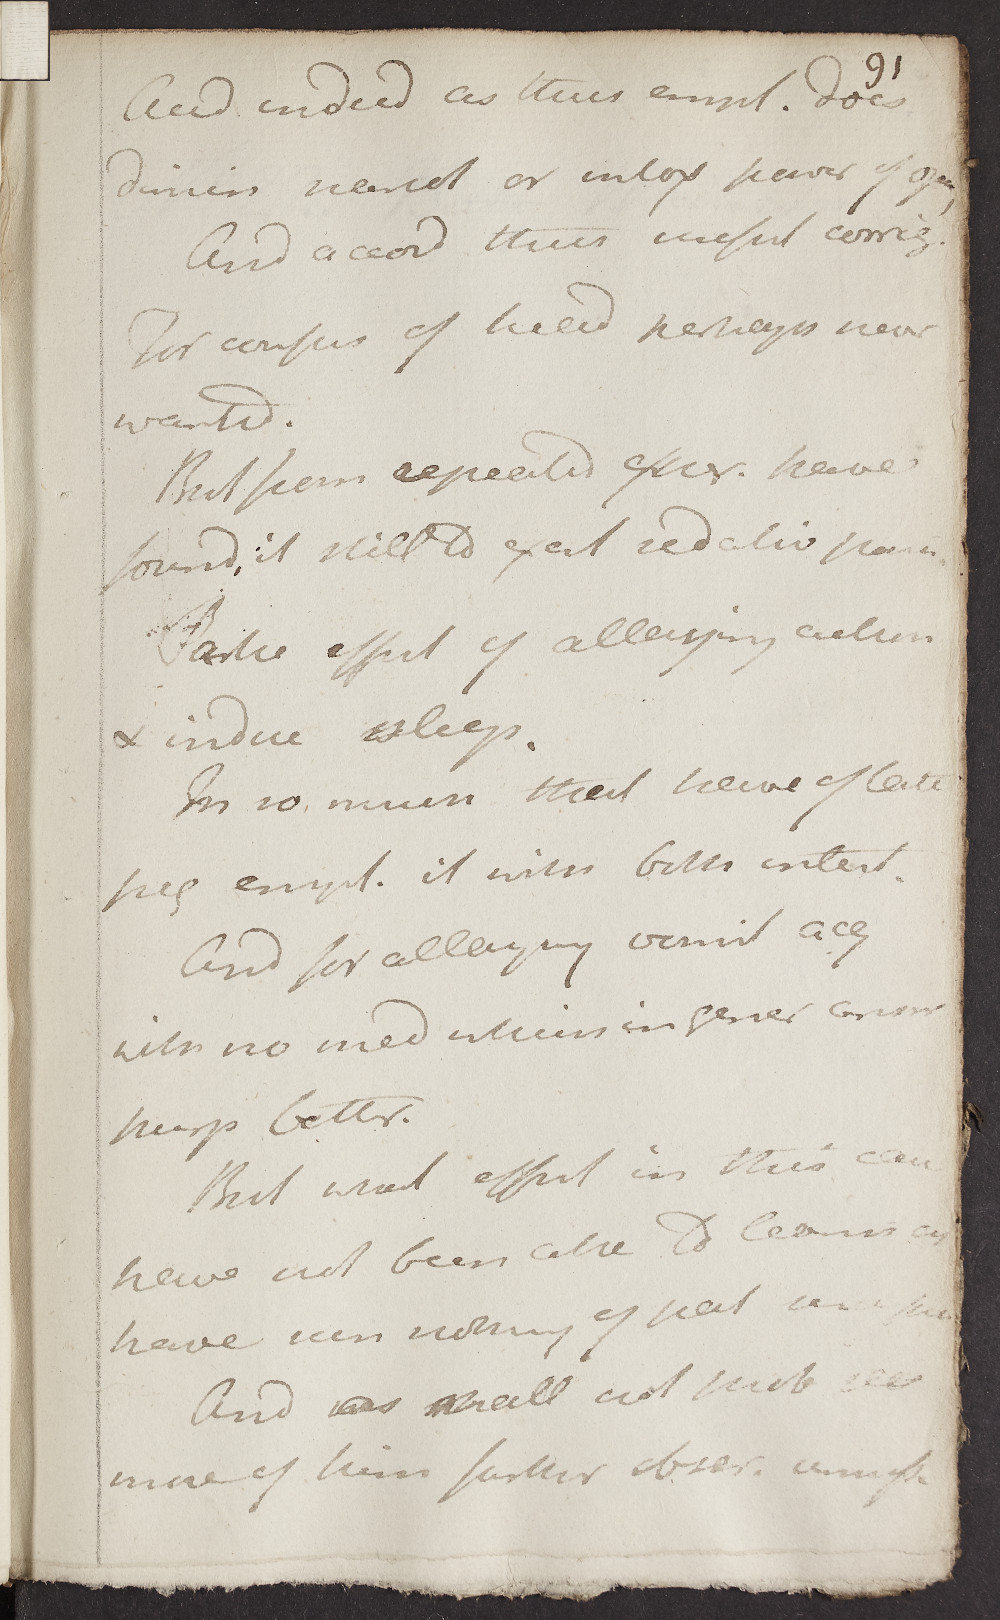 91
And indeed as thus empl. does
dimin narcot or intox power of
And accord thus useful corrig.
For confus of head perhaps never
wanted.
But from repeated exper. have
found, it still to exert sedativ power.
Partic effect of allaying action
& induc sleep.
In so much that have of late
freq empl. it with both intent.
And for allaying vomit acq
with no med which in gener answ
purp better.
But what effect in this case
have not been able to learn as
have seen nothing of pat
And as shall not prob see
more of him further obser. unnecess.